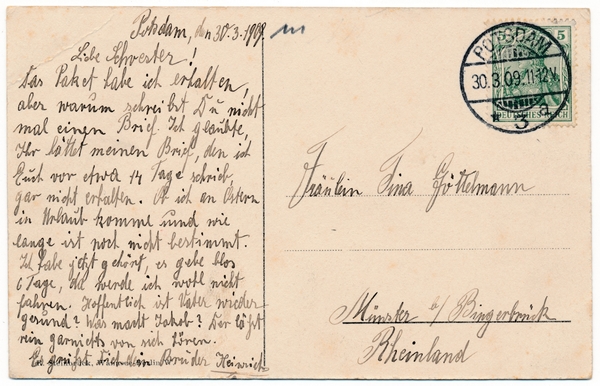 Potsdam, den 30.3.1909.
Liebe Schwester!
Das Paket habe ich erhalten,
aber warum schreibst Du nicht
mal eingen Brief. Ich glaubte,
Ihr hättet meinen Brief, den ich
Euch vor etwa 14 Tage schrieb
gar nicht erhalten. Ob ich an Ostern
in Urlaub komme und wie
lange ist noch nicht bestimmt.
Ich habe jetzt gehört, es gebe blos
6 Tage, da werde ich wohl nicht
fahren. Hoffentlich ist Vater wieder
gesund? Was macht Jakob? Der läßt
rein garnichts von sich hören.
Es grüßt Dich Dein Bruder Heinrich
POTSDAM
30.3.09.11-12V.
* 3 a
5
DEUTSCHES REICH
Fräulein Tina Göttelmann
Münster b/ Bingerbrück
Rheinland